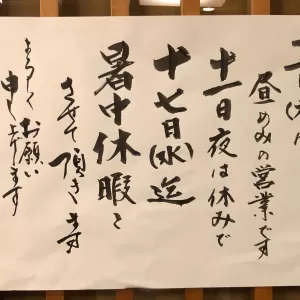 昼のみの営業です
十一日夜は休みで
十七日(水)迄
暑中休暇と
させて頂きます
よろしくお願い
申し上げます